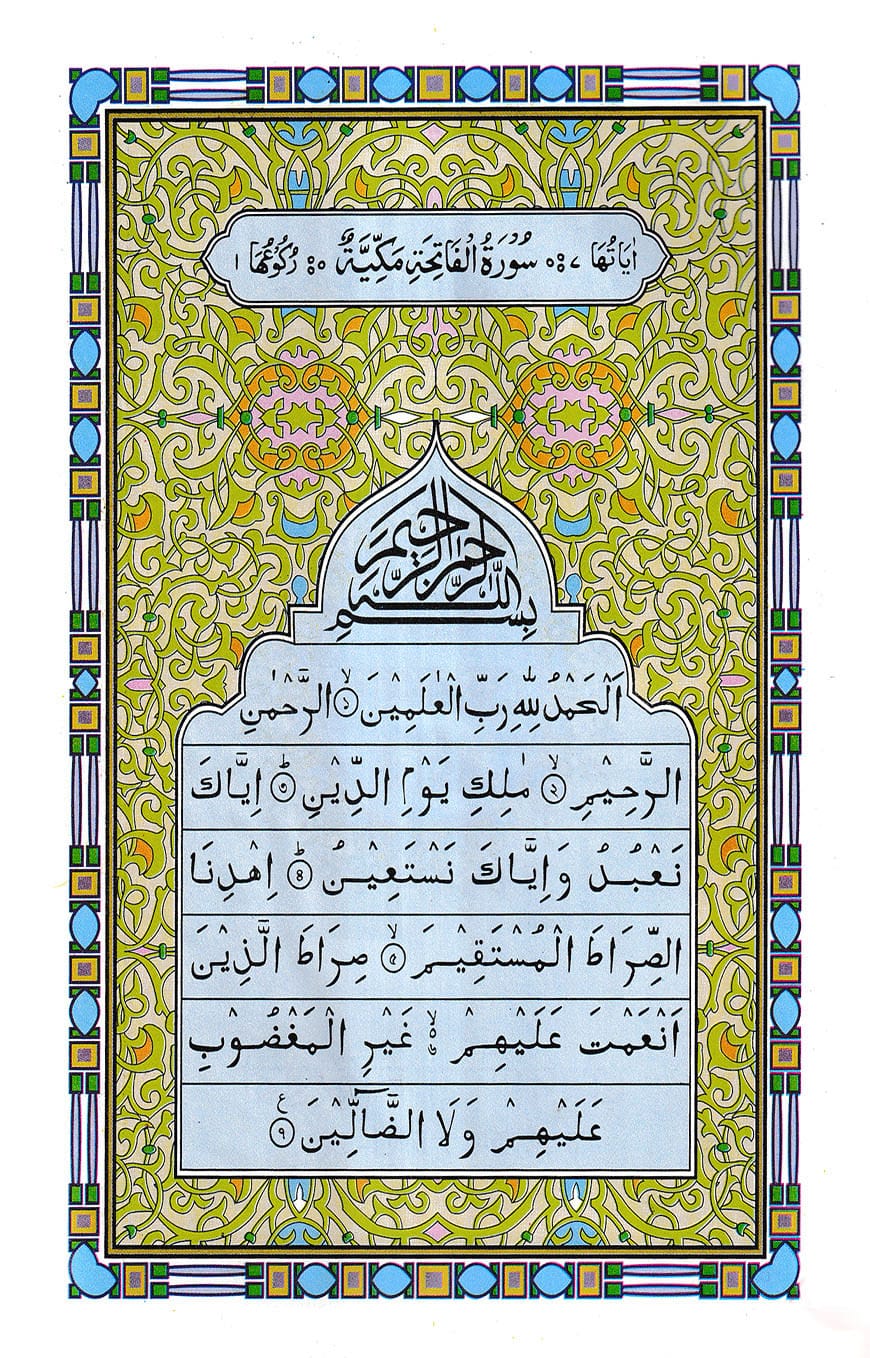 اٰيَاتُهَا ٧ سُوْرَةُ الْفَاتِحَةِ مَكِّيَّةٌ ٥ رُكُوْعُهَا ١
بِسْمِ اللّٰهِ الرَّحْمٰنِ الرَّحِيْمِ
اَلْحَمْدُ لِلّٰهِ رَبِّ الْعٰلَمِيْنَ ۙ﴿۱﴾ الرَّحْمٰنِ
الرَّحِيْمِ ۙ﴿۲﴾ مٰلِكِ يَوْمِ الدِّيْنِ ؕ﴿۳﴾ اِيَّاكَ
نَعْبُدُ وَاِيَّاكَ نَسْتَعِيْنُ ؕ﴿۴﴾ اِهْدِنَا
الصِّرَاطَ الْمُسْتَقِيْمَ ۙ﴿۵﴾ صِرَاطَ الَّذِيْنَ
اَنْعَمْتَ عَلَيْهِمْ ۙ۬ۦ غَيْرِ الْمَغْضُوْبِ
عَلَيْهِمْ وَلَا الضَّآلِّيْنَ ﴿۹﴾ ع